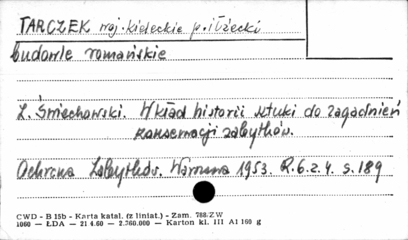 TARCZEK woj. kieleckie p. iłżecki
budowle romańskie
L. Śmiechowski. Wkład historii sztuki do zagadnień
konserwacji zabytków.
Ochrona Zabytków. Warszawa 1953. R.6.z.4. s.189
CWD - B 15b - Karta katal. (z liniat.) - Zam. 788/ZW
1060 — ŁDA — 21 4.60 — 2.760.000 — Karton kl. III A1 160 g